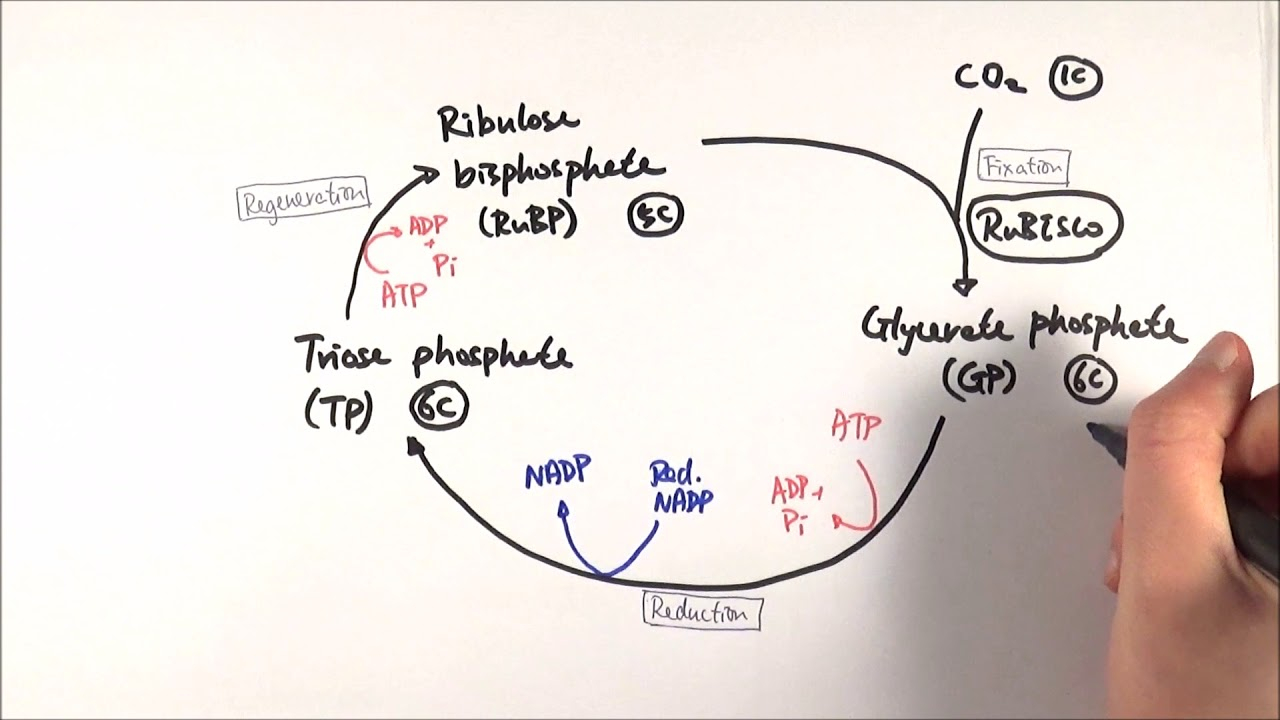 CO₂ 1C
Ribulose
bisphosphate
(RuBP) 5C
Fixation
RuBISCO
Regeneration
ADP
+
Pi
ATP
Glycerate phosphate
(GP) 6C
Triose phosphate
(TP) 6C
ATP
ADP +
Pi
NADP
Red.
NADP
Reduction